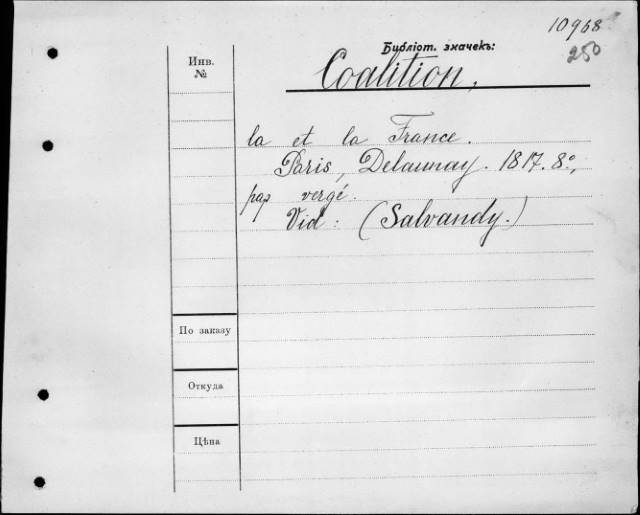 10968
250
Библіот. значекъ:
Coalition,
Инв.
№
la et la France.
Paris, Delaunay. 1817. 8°,
pap vergé.
Vid: (Salvandy.)
По заказу
Откуда
Цѣна